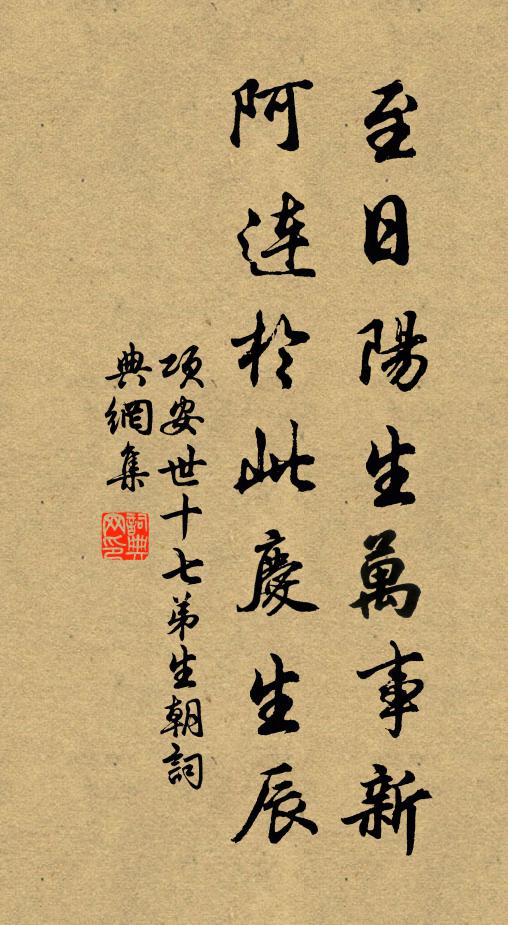 至日陽生萬事新
阿連於此慶生辰
項安世十七弟生朝詞
典網集
詞典網印